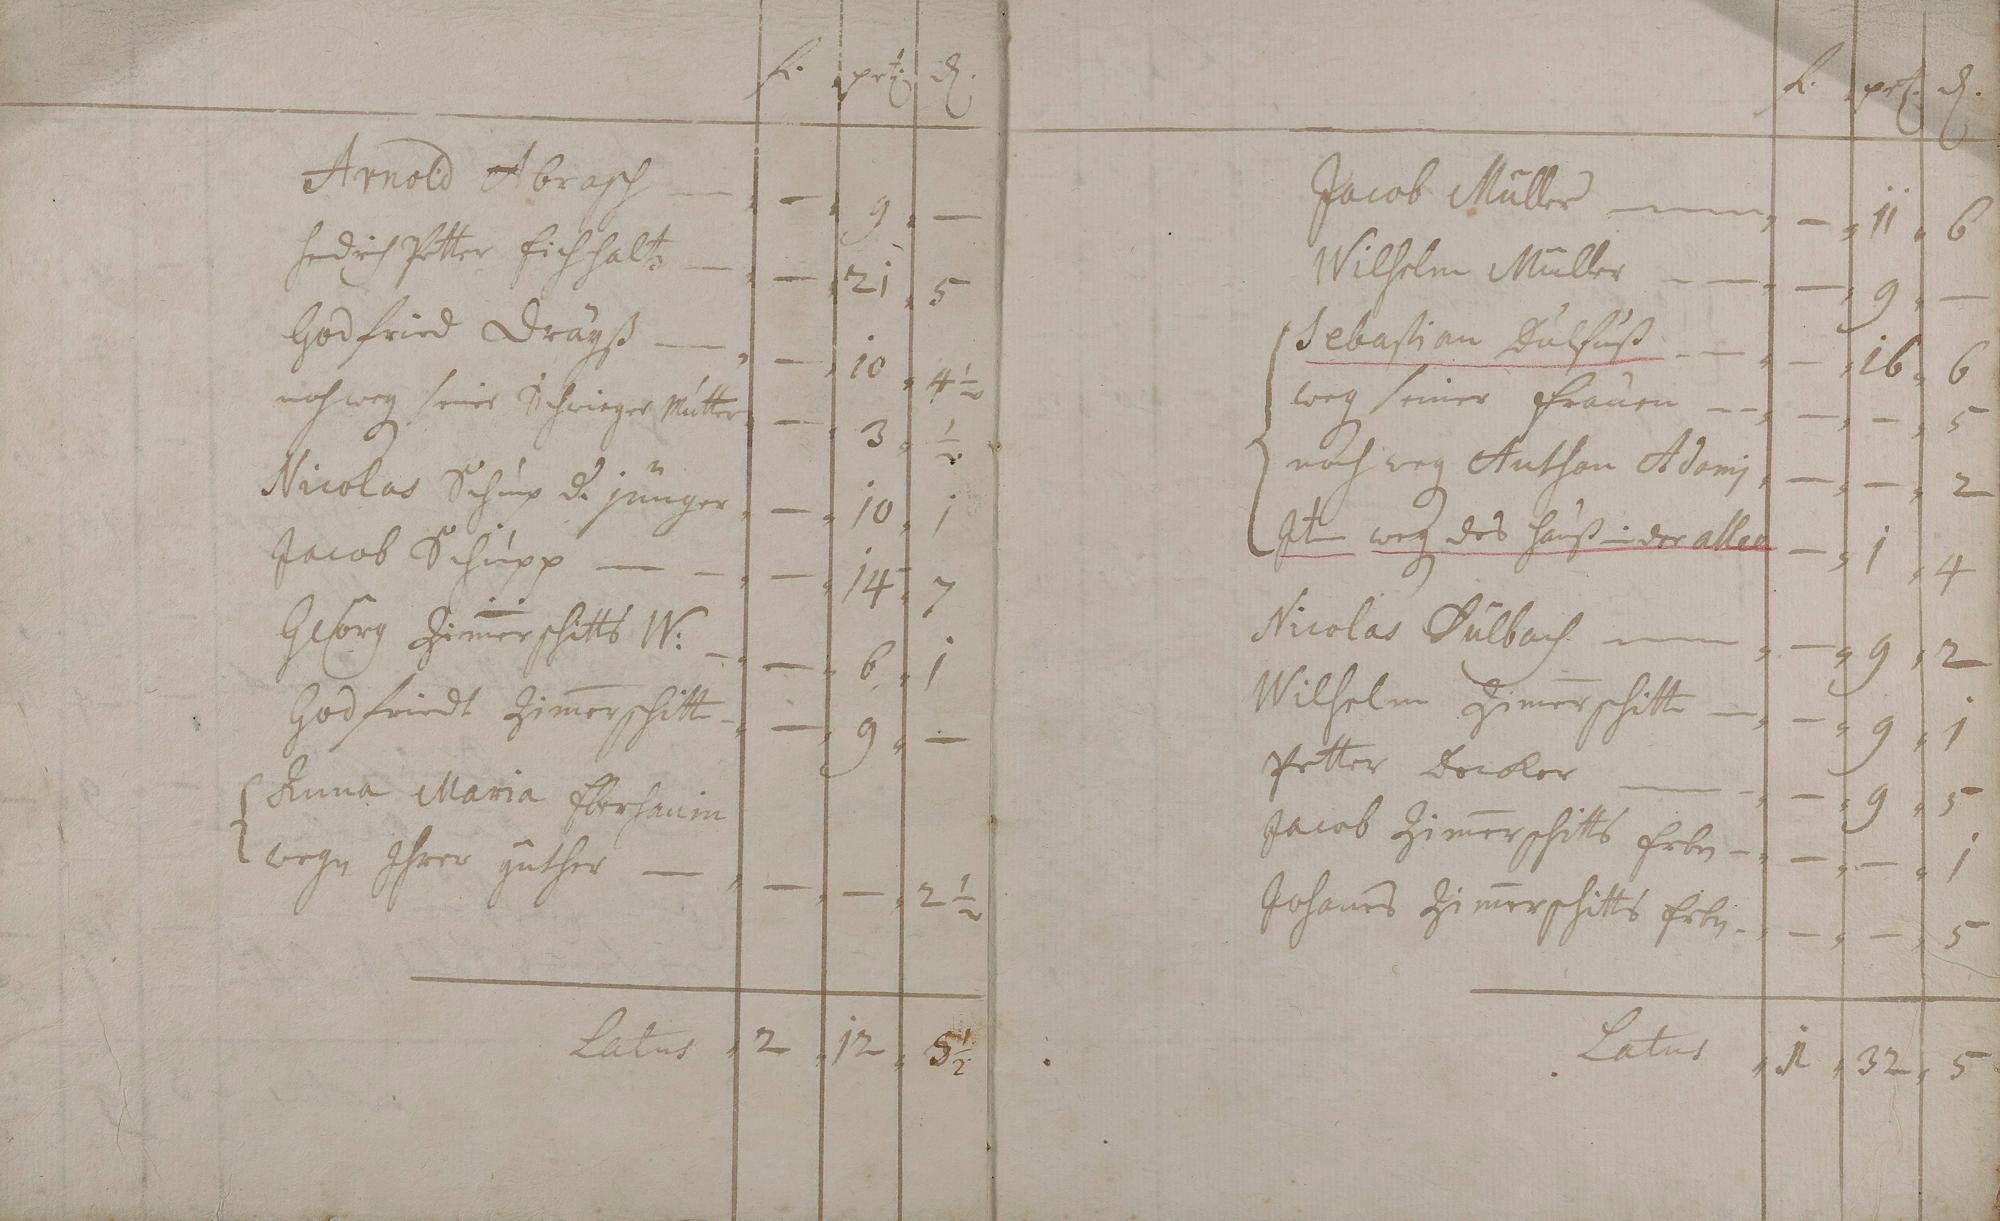 fl. prtz. d.
Arnold Abrasch — — 9 —
Petter Eichhaltz — — 21 5
Godfried Dräyß — — 10 4½
noch weg seiner Schwieger Mutter — 3 ½
Nicolas Schüp d. jünger — 10 1
Jacob Schüpp — — — 14 7
Georg Zimerschitts W: — — 6 1
Godfriedt Zimerschitt — — 9 —
Anna Maria
wegn Ihrer güther — — — 2½
Latus 2 12 5½
fl. prtz. d.
Jacob Müller — — 11 6
Wilhelm Müller — — — 9 —
Sebastian Dülfuß — — — 16 6
weg seiner Frauen — — — — 5
noch weg Anthon Adamj — — 2
It weg des Hauß in der allee — 1 4
Nicolas Dülbach — — 9 2
Wilhelm Zimerschitt — — 9 1
Petter Decker — — — 9 5
Jacob Zimerschitts Erbn — — — 1
Johanes Zimerschitts Erbn — — — 5
Latus 1 32 5